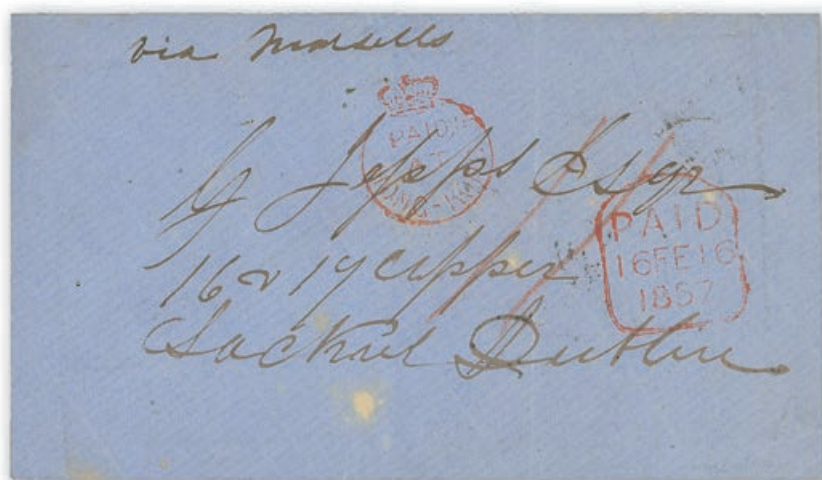 via Marsells
PAID
AT
HONG-KONG
G Jepps Esqr
16 & 17 upper
Sackvil Dublin
PAID
16FE16
1857